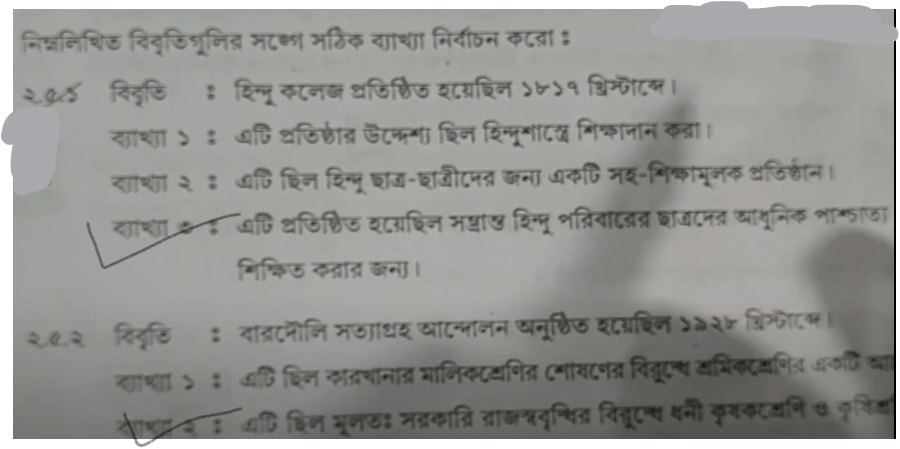 নিম্নলিখিত বিবৃতিগুলির সঙ্গে সঠিক ব্যাখ্যা নির্বাচন করো :
২.৫.১ বিবৃতি : হিন্দু কলেজ প্রতিষ্ঠিত হয়েছিল ১৮১৭ খ্রিস্টাব্দে।
ব্যাখ্যা ১ : এটি প্রতিষ্ঠার উদ্দেশ্য ছিল হিন্দুশাস্ত্রে শিক্ষাদান করা।
ব্যাখ্যা ২ : এটি ছিল হিন্দু ছাত্র-ছাত্রীদের জন্য একটি সহ-শিক্ষামূলক প্রতিষ্ঠান।
ব্যাখ্যা ৩ : এটি প্রতিষ্ঠিত হয়েছিল সম্ভ্রান্ত হিন্দু পরিবারের ছাত্রদের আধুনিক পাশ্চাত্য
শিক্ষিত করার জন্য।
২.৫.২ বিবৃতি : বারদৌলি সত্যাগ্রহ আন্দোলন অনুষ্ঠিত হয়েছিল ১৯২৮ খ্রিস্টাব্দে।
ব্যাখ্যা ১ : এটি ছিল কারখানার মালিকশ্রেণির শোষণের বিরুদ্ধে শ্রমিকশ্রেণির একটি
ব্যাখ্যা ২ : এটি ছিল মূলতঃ সরকারি রাজস্ববৃদ্ধির বিরুদ্ধে ধনী কৃষকশ্রেণি ও